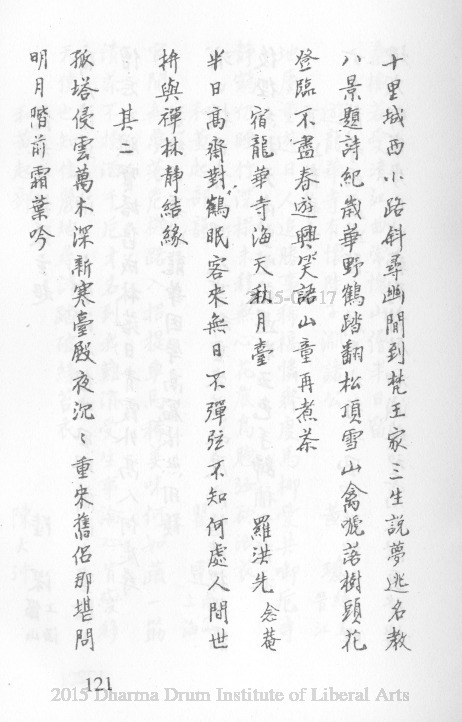 十里城西小路斜尋幽閒到梵王家三生說夢逃名教
八景題詩紀歲華野鶴踏翻松頂雪山禽嗁落樹頭花
登臨不盡春遊興笑語山童再煮茶
宿龍華寺海天秋月臺 羅洪先念菴
半日高齋對鶴眠客來無日不彈弦不知何處人間世
拚與禪林靜結緣
其二
孤塔侵雲萬木深新寒臺殿夜沉〻重來舊侶那堪問
明月階前霜葉吟
121
2015 Dharma Drum Institute of Liberal Arts